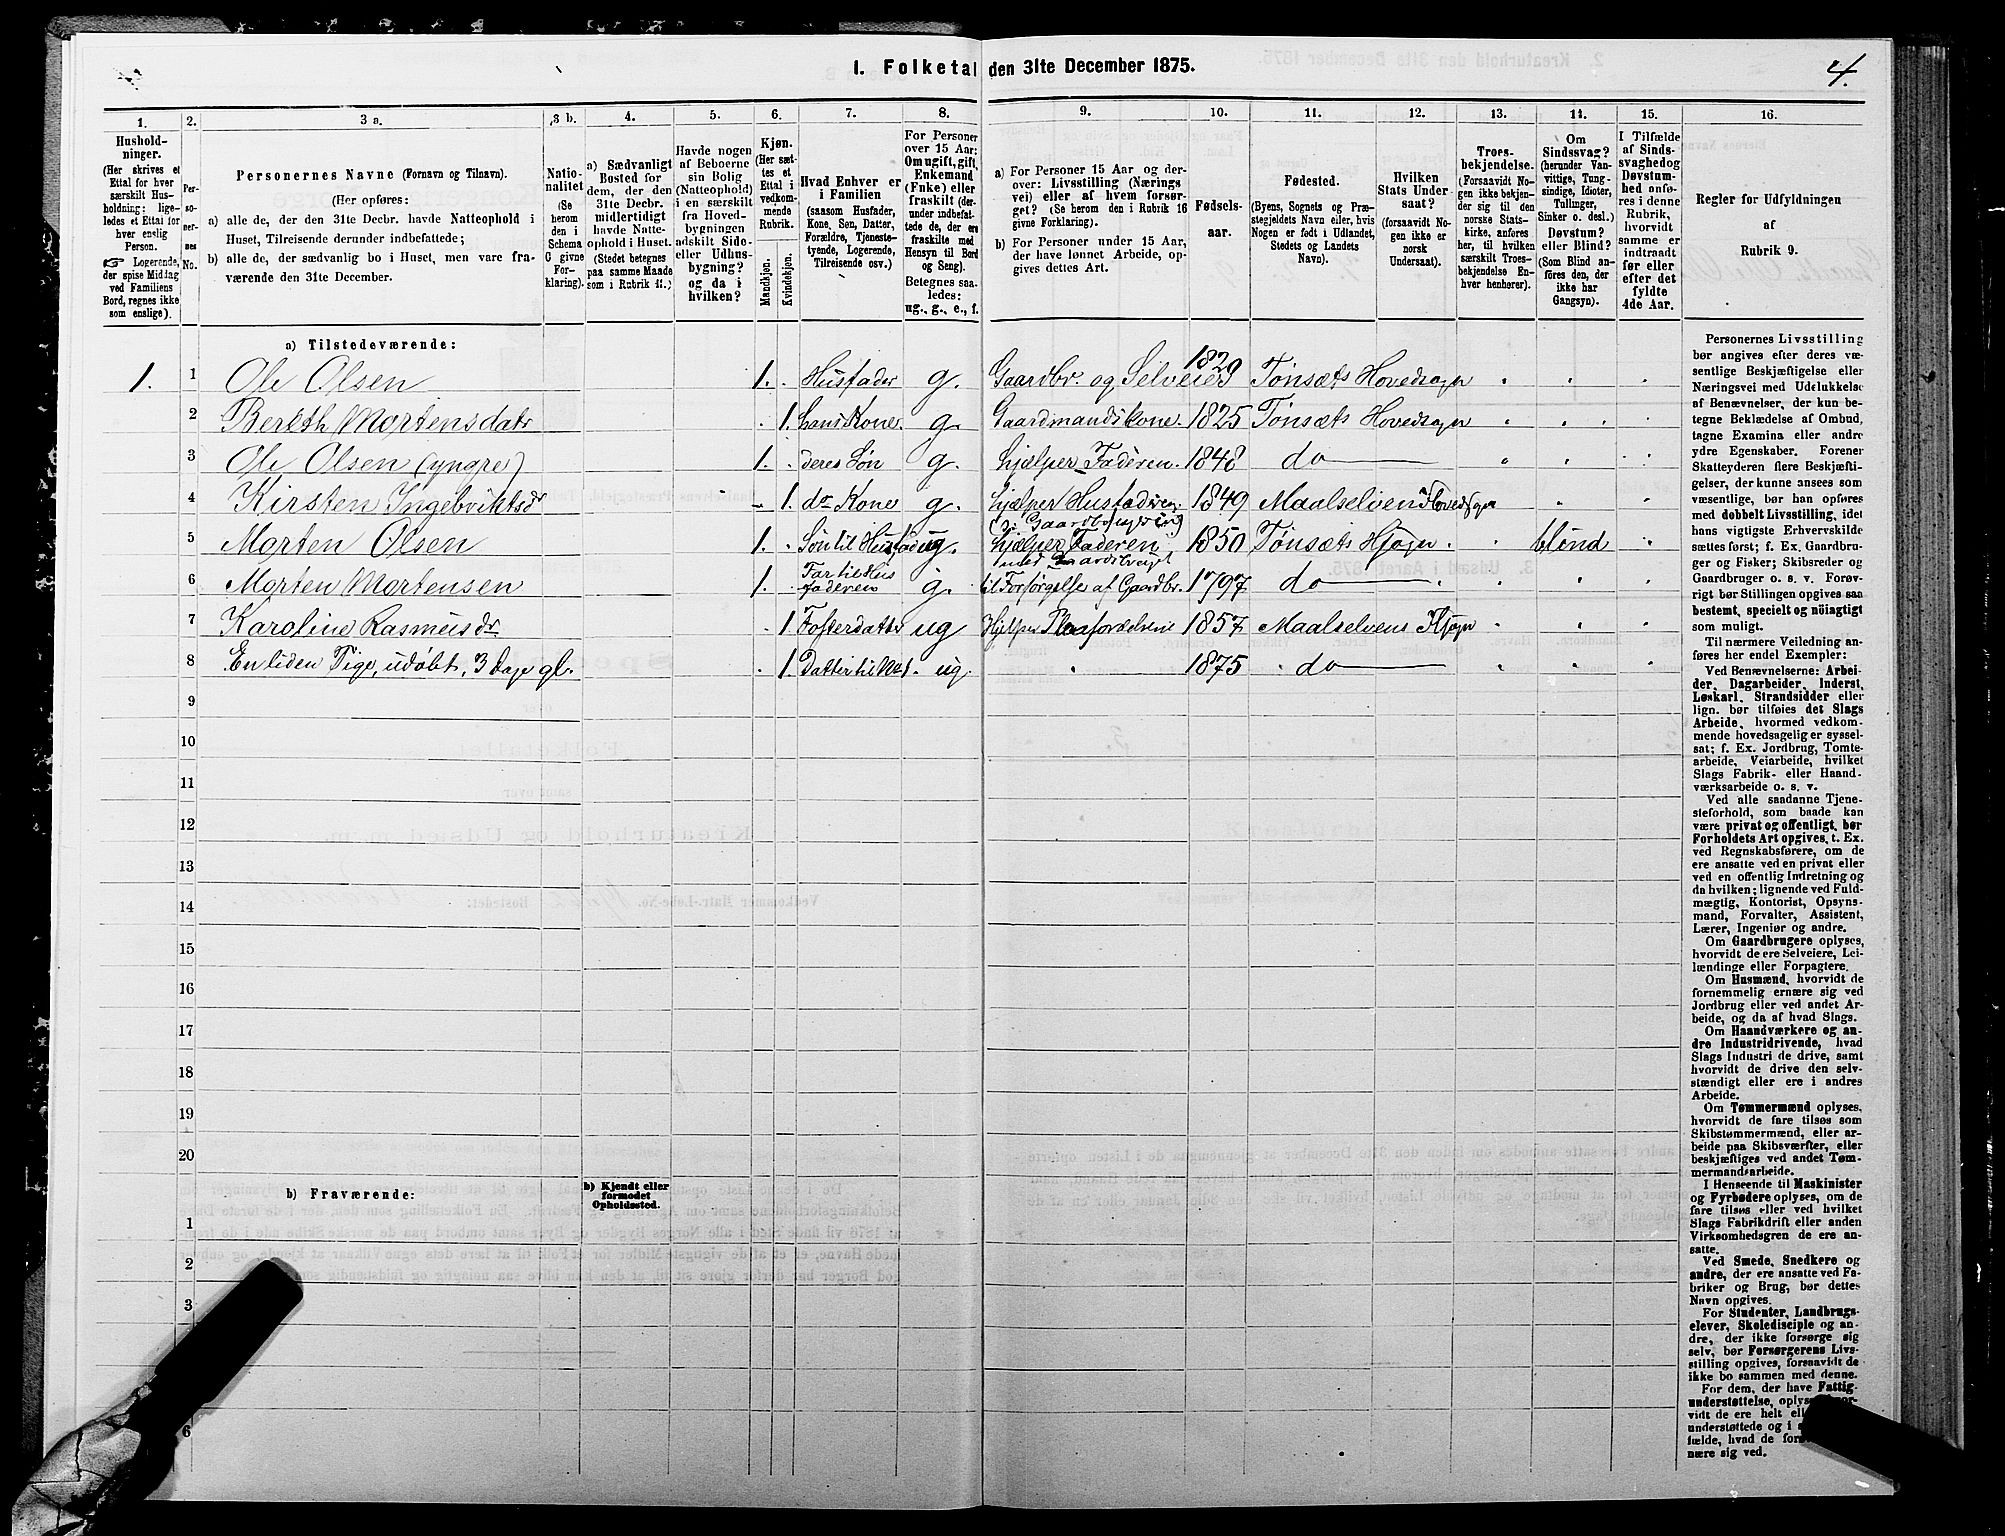 1. Folketal den 31te December 1875.
4.
1. 2. 3 a. 3 b. 4. 5. 6. 7. 8. 9. 10. 11. 12. 13. 14. 15. 16.
Hushold-
ninger.
(Her skrives et
Ettal for hver
særskilt Hus-
holdning: lige-
ledes et Ettal for
hver enslig
Person.
☞ Logerende,
der spise Middag
ved Familiens
Bord, regnes ikke
som enslige).
Per-
so-
ner-
nes
No.
Personernes Navne (Fornavn og Tilnavn).
(Her opføres:
a) alle de, der den 31te Decbr. havde Natteophold i
Huset, Tilreisende derunder indbefattede;
b) alle de, der sædvanlig bo i Huset, men vare fra-
værende den 31te December.
Natio-
nalitet
(Se
herom
den i
Schema
C givne
For-
klaring).
a) Sædvanligt
Bosted for
dem, der den
31te Decbr.
midlertidigt
havde Natte-
ophold i Huset.
(Stedet betegnes
paa samme Maade
som i Rubrik 11.)
Havde nogen
af Beboerne
sin Bolig
(Natteophold)
i en særskilt
fra Hoved-
bygningen
adskilt Side-
eller Udhus-
bygning?
og da i
hvilken?
Kjøn.
(Her sæt-
tes et
Ettal i
vedkom-
mende
Rubrik.
Mandkjøn.
Kvindekjøn.
Hvad Enhver er
i Familien
(saasom Husfader,
Kone, Søn, Datter,
Forældre, Tjeneste-
tyende, Logerende,
Tilreisende osv.)
For Personer
over 15 Aar:
Om ugift, gift,
Enkemand
(Enke) eller
fraskilt (der-
under indbefat-
tede de, der ere
fraskilte med
Hensyn til Bord
og Seng).
Betegnes saa-
ledes:
ug., g., e., f.
a) For Personer 15 Aar og der-
over: Livsstilling (Nærings-
vei) eller af hvem forsør-
get? (Se herom den i Rubrik 16
givne Forklaring).
b) For Personer under 15 Aar,
der have lønnet Arbeide, op-
gives dettes Art.
Fødsels-
aar.
Fødested.
(Byens, Sognets og Præ-
stegjeldets Navn eller, hvis
Nogen er født i Udlandet,
Stedets og Landets
Navn).
Hvilken
Stats Under-
saat?
(forsaavidt No-
gen ikke er
norsk
Undersaat).
Troes-
bekjendelse.
(Forsaavidt No-
gen ikke bekjen-
der sig til den
norske Stats-
kirke, anføres
her, til hvilken
særskilt Troes-
bekjendelse En-
hver henhører).
Om
Sindssvag?
(herunder Van-
vittige, Tung-
sindige, Idioter,
Tullinger,
Sinker o. desl.)
Døvstum?
eller Blind?
(Som Blind an-
føres den, der
ikke har
Gangsyn).
I Tilfælde
af Sinds-
svaghed og
Døvstum-
hed anfø-
res i denne
Rubrik,
hvorvidt
samme er
indtraadt
før eller
efter det
fyldte
4de Aar.
Regler for Udfyldningen
af
Rubrik 9.
a) Tilstedeværende:
1. 1 Ole Olsen 1. Husfader g. Gaardbr. og Selveier 1820 Tønsæts Hovedsogn
2 Berëth Mortensdatr 1. hans Kone. g. Gaardmandskone. 1825 Tønsæts Hovedsogn
3 Ole Olsen (yngre) 1. deres Søn g. hjælper Faderen. 1848 do
4 Kirsten Ingebriktsdr 1. ds Kone g. hjælper Husfaderen 1849 Maalselvens Hovedsogn
i Gaardbrugning
5 Morten Olsen 1. Søn til Husfad ug. hjælper Faderen 1850 Tønsæts Hsogn. blind
med Gaardsbruget
6 Morten Mortensen 1. Far til Hus g. til Forsørgelse af Gaardbr. 1797 do
faderens
7 Karoline Rasmusdr 1. Fosterdatter ug Hjelper Pleaforældrene 1857 Maalselvens Hsogn
8 En liden Pige, udøbt, 3 Dage gl. 1. Datter til No 4. ug. 1875 do
9
10
11
12
13
14
15
16
17
18
19
20
b) Fraværende:
b) Kjendt eller
formodet
Opholdssted.
1
2
3
6
Personernes Livsstilling
bør angives efter deres væ-
sentlige Beskjæftigelse eller
Næringsvei med Udelukkelse
af Benævnelser, der kun be-
tegne Beklædelse af Ombud,
tagne Examina eller andre
ydre Egenskaber. Forener
Skatteyderen flere Beskjæfti-
gelser, der kunne ansees som
væsentlige, bør han opføres
med dobbelt Livsstilling, idet
hans vigtigste Erhvervskilde
sættes først; f. Ex. Gaardbru-
ger og Fisker; Skibsreder og
Gaardbruger o. s. v. Forøv-
rigt bør Stillingen opgives saa
bestemt, specielt og nøiagtigt
som muligt.
Til nærmere Veiledning an-
føres her endel Exempler:
Ved Benævnelserne: Arbei-
der, Dagarbeider, Inderst,
Løskarl, Strandsidder eller
lign. bør tilføies det Slags
Arbeide, hvormed vedkom-
mende hovedsagelig er syssel-
sat; f. Ex. Jordbrug, Tomte-
arbeide, Veiarbeide, hvilket
Slags Fabrik- eller Haand-
værksarbeide o. s. v.
Ved alle saadanne Tjene-
steforhold, som baade kan
være privat og offentligt, bør
Forholdets Art opgives, t. Ex.
ved Regnskabsførere, om de
ere ansatte ved en privat eller
ved en offentlig Indretning og
da hvilken; lignende ved Fuld-
mægtig, Kontorist, Opsyns-
mand, Forvalter, Assistent,
Lærer, Ingeniør og andre.
Om Gaardbrugere oplyses,
hvorvidt de ere Selveiere, Lei-
lændinge eller Forpagtere.
Om Husmænd, hvorvidt de
fornemmelig ernære sig ved
Jordbrug eller ved andet Ar-
beide, og da af hvad Slags.
Om Haandværkere og an-
dre Industridrivende, hvad
Slags Industri de drive, samt
hvorvidt de drive den selv-
stændigt eller ere i andres
Arbeide.
Om Tømmermænd oplyses,
hvorvidt de fare tilsøs som
Skibstømmermænd, eller ar-
beide paa Skibsværfter, eller
beskjæftiges ved andet Tøm-
mermandsarbeide.
I Henseende til Maskinister
og Fyrbødere oplyses, om de
fare tilsøs eller ved hvilket
Slags Fabrikdrift eller anden
Virksomhedsgren de ere an-
satte.
Ved Smede, Snedkere og
andre, der ere ansatte ved Fa-
briker og Brug, bør dettes
Navn opgives.
For Studenter, Landbrugs-
elever, Skoledisciple og an-
dre, der ikke forsørge sig
selv, bør Forsørgerens Livs-
stilling opgives, forsaavidt de
ikke bo sammen med denne.
For dem, der have Fattig-
understøttelse, oplyses
vidt de ere helt
understøttede og i
fælde, hvad de
nære sig ved.